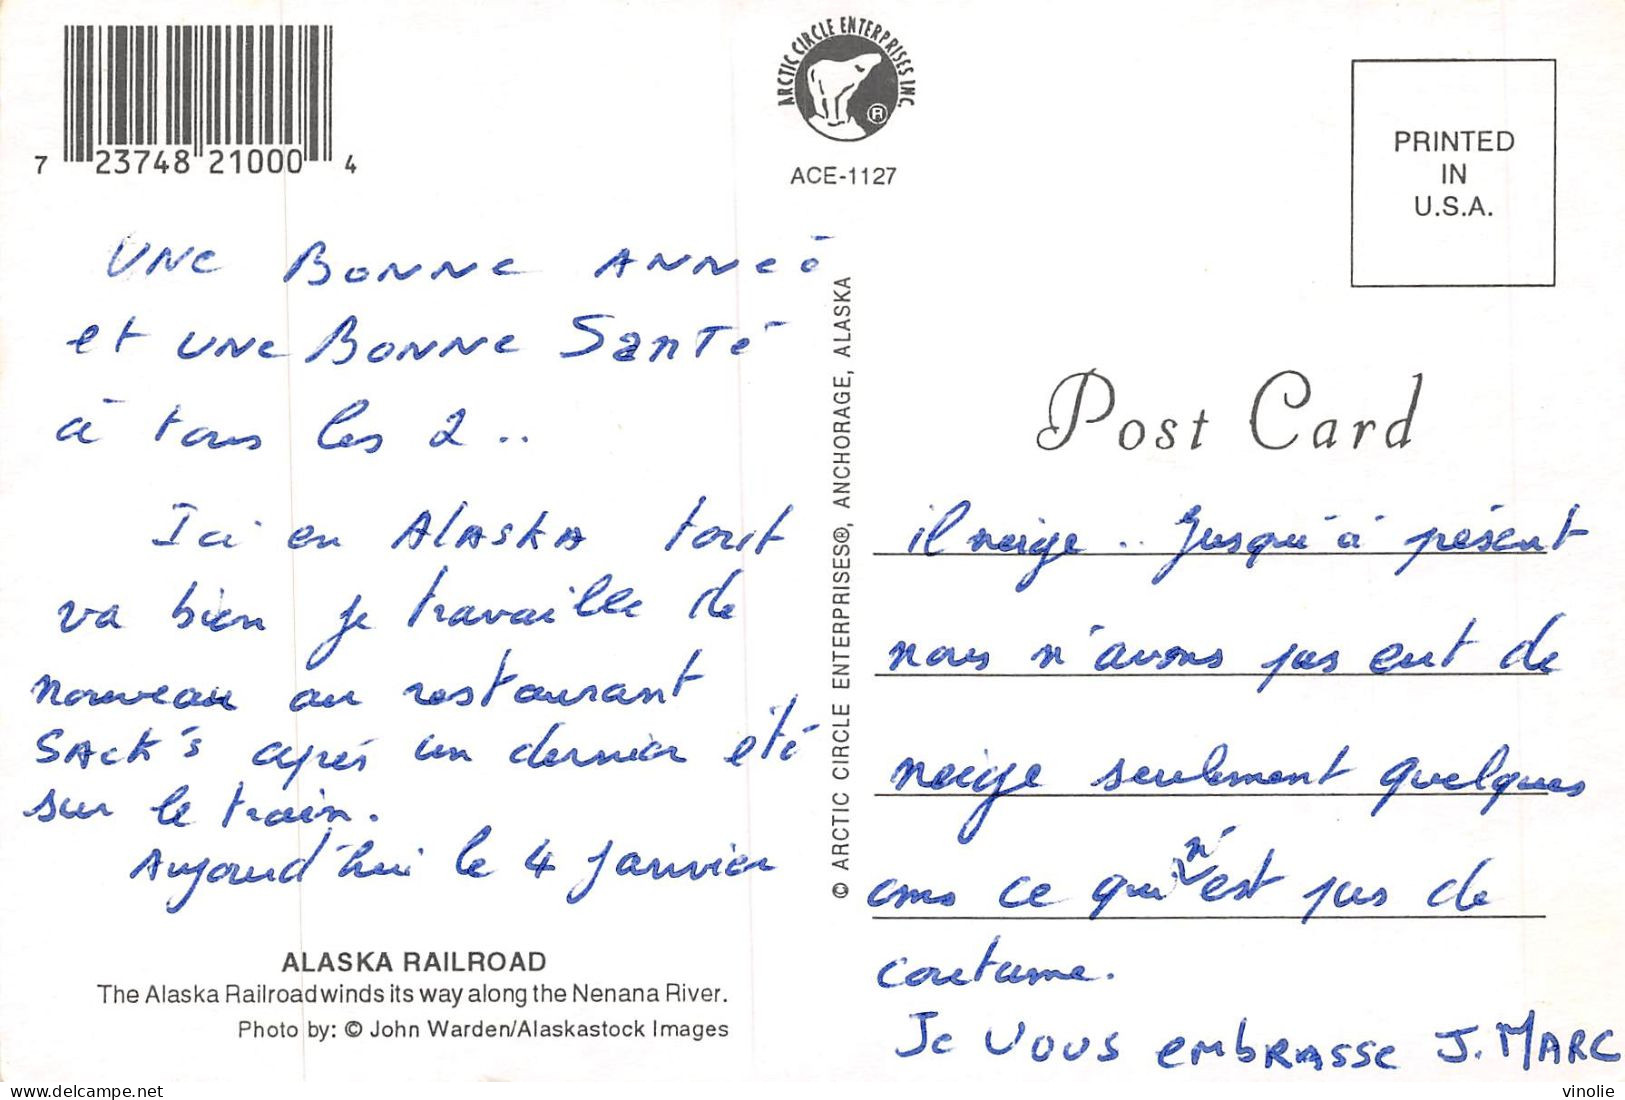 7 23748 21000 4
ARCTIC CIRCLE ENTERPRISES INC.
®
ACE-1127
PRINTED
IN
U.S.A.
UNE BONNE ANNEE
et UNE BONNE SANTÉ
à tous les 2..
Ici en ALASKA tout
va bien je travaille de
nouveau au restaurant
SACK's après un dernier été
sur le train.
Aujourd'hui le 4 janvier
ALASKA RAILROAD
The Alaska Railroad winds its way along the Nenana River.
Photo by: © John Warden/Alaskastock Images
© ARCTIC CIRCLE ENTERPRISES®, ANCHORAGE, ALASKA
Post Card
il neige .. Jusqu'à présent
nous n'avons pas eut de
neige seulement quelques
cms ce qui n'est pas de
coutume.
Je vous embrasse J. MARC
vinolie